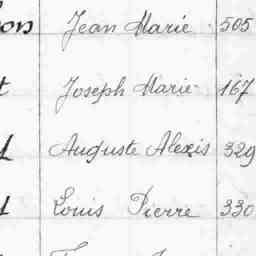 Jean Marie 505
Joseph Marie 167
Auguste Alexis 329
Louis Pierre 330